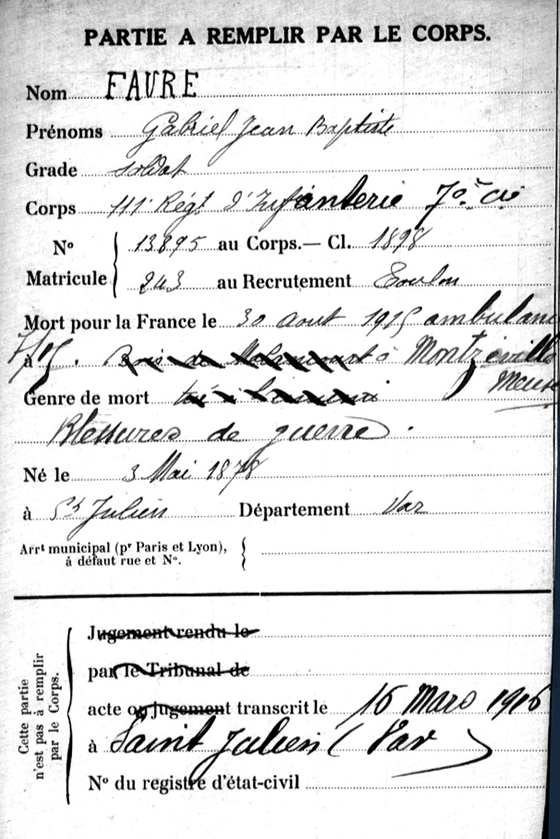 PARTIE A REMPLIR PAR LE CORPS.
Nom FAURE
Prénoms Gabriel Jean Baptiste
Grade soldat
Corps 111e Régt d'Infanterie 7e Cie
N° 13895 au Corps.— Cl. 1898
Matricule 243 au Recrutement Toulon
Mort pour la France le 30 août 1915 ambulance
7/15. à Bois de Malancourt à Montzéville
Meuse
Genre de mort tué à l'ennemi
Blessures de guerre.
Né le 3 Mai 1878
à St Julien Département Var
Arrt municipal (pr Paris et Lyon),
à défaut rue et N°.
Cette partie
n'est pas à remplir
par le Corps.
Jugement rendu le
par le Tribunal de
acte ou jugement transcrit le 16 Mars 1916
à Saint Julien (Var)
N° du registre d'état-civil